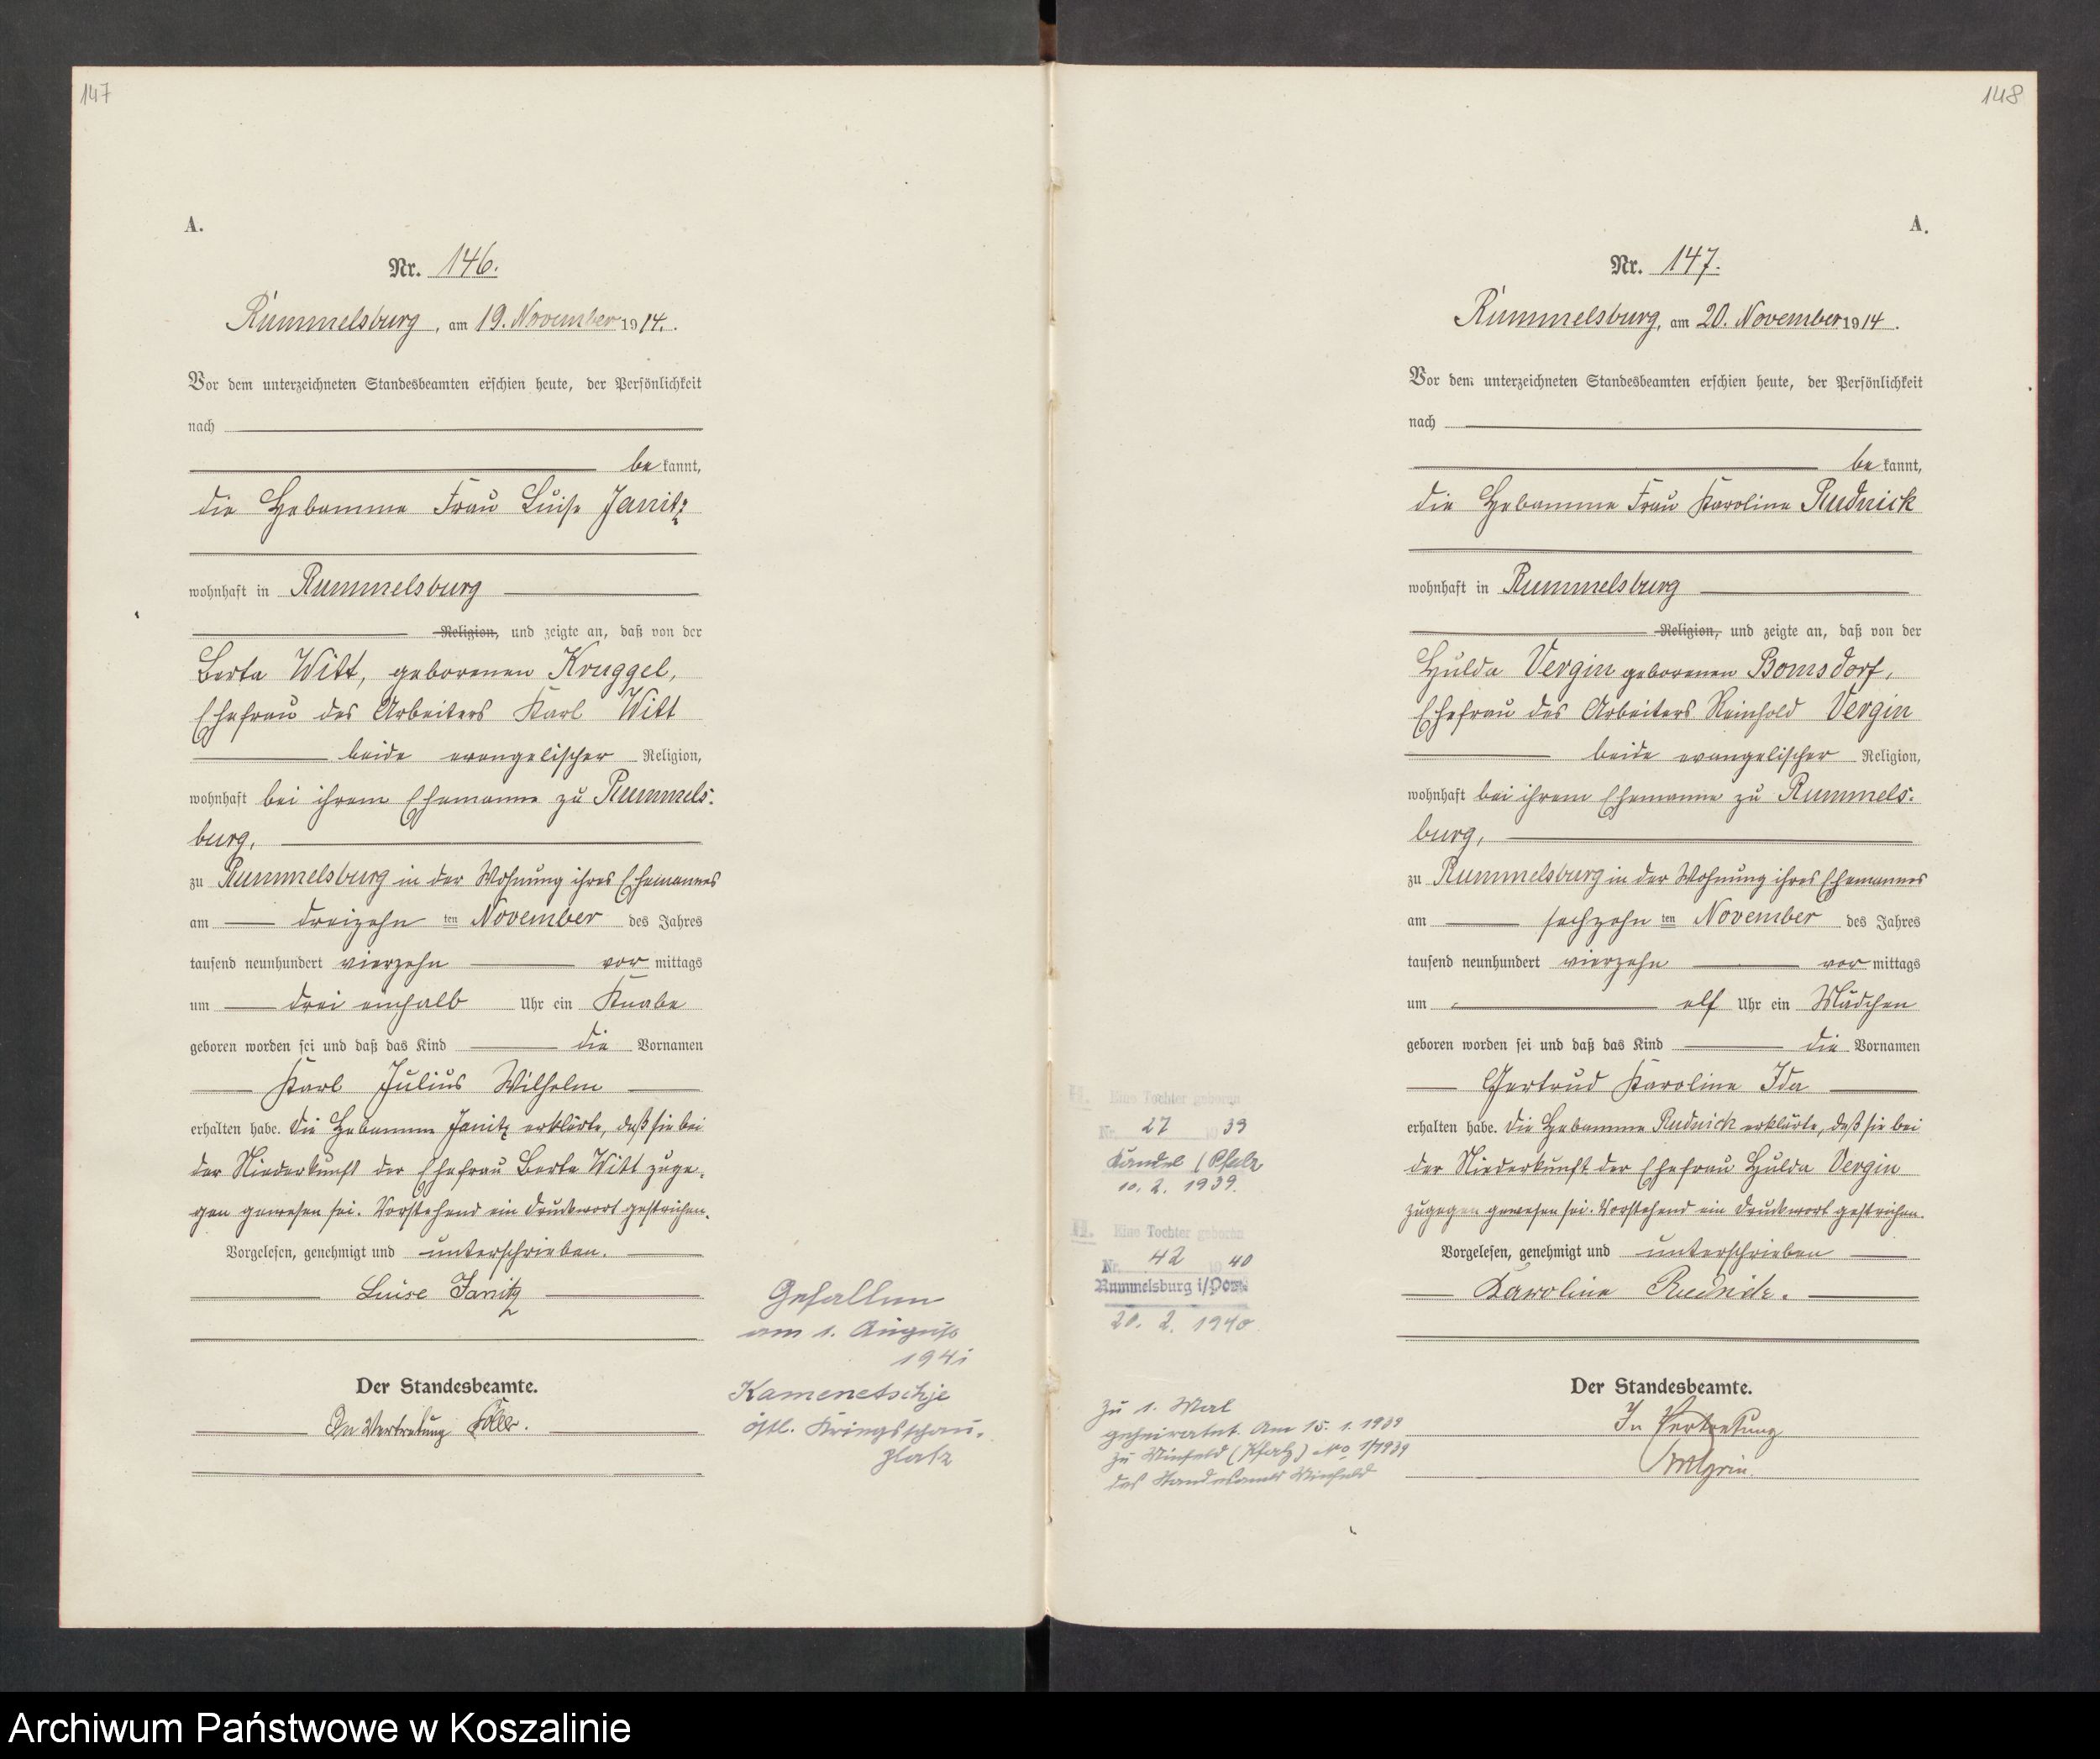 147
A.
Nr. 146.
Rummelsburg, am 19. November 1914.
Vor dem unterzeichneten Standesbeamten erschien heute, der Persönlichkeit
nach
be kannt,
die Hebamme Frau Luise Janitz
wohnhaft in Rummelsburg
Religion, und zeigte an, daß von der
Berta Witt, geborenen Kruggel,
Ehefrau des Arbeiters Karl Witt
beide evangelischer Religion,
wohnhaft bei ihrem Ehemanne zu Rummels-
burg,
zu Rummelsburg in der Wohnung ihres Ehemannes
am dreizehn ten November des Jahres
tausend neunhundert vierzehn vor mittags
um drei einhalb Uhr ein Knabe
geboren worden sei und daß das Kind die Vornamen
Karl Julius Wilhelm
erhalten habe. Die Hebamme Janitz erklärte, daß sie bei
der Niederkunft der Ehefrau Berta Witt zuge-
gen gewesen sei. Vorstehend ein Druckwort gestrichen.
Vorgelesen, genehmigt und unterschrieben.
Luise Janitz
Der Standesbeamte.
In Vertretung
Gefallen
am 1. August
1941
Kamenetschje
östl. Kriegsschau-
platz
148
A.
Nr. 147.
Rummelsburg, am 20. November 1914.
Vor dem unterzeichneten Standesbeamten erschien heute, der Persönlichkeit
nach
be kannt,
die Hebamme Frau Karoline Rudnick
wohnhaft in Rummelsburg
Religion, und zeigte an, daß von der
Hulda Vergin geborenen Bomsdorf,
Ehefrau des Arbeiters Reinhold Vergin
beide evangelischer Religion,
wohnhaft bei ihrem Ehemanne zu Rummels-
burg,
zu Rummelsburg in der Wohnung ihres Ehemannes
am sechzehn ten November des Jahres
tausend neunhundert vierzehn vor mittags
um elf Uhr ein Mädchen
geboren worden sei und daß das Kind die Vornamen
Gertrud Karoline Ida
erhalten habe. Die Hebamme Rudnick erklärte, daß sie bei
der Niederkunft der Ehefrau Hulda Vergin
zugegen gewesen sei. Vorstehend ein Druckwort gestrichen.
Vorgelesen, genehmigt und unterschrieben
Karoline Rudnick.
Der Standesbeamte.
In Vertretung
H. Eine Tochter geboren
Nr. 27 1939
Kandel / Pfalz
10. 2. 1939.
H. Eine Tochter geboren
Nr. 42 1940
Rummelsburg i/Pom.
20. 2. 1940
Zu 1. Mal
geheiratet. Am 15. 1. 1939
zu Winfeld (Pfalz) No 1/1939
des Standesamts Winfeld
Archiwum Państwowe w Koszalinie